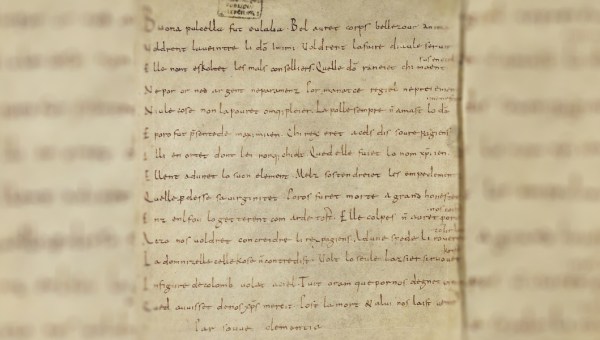 Buona pulcella fut eulalia. Bel auret corps bellezour anima
Voldrent la ueintre li dõ Inimi. Voldrent la faire diaule seruir
Elle nont eskoltet les mals conselliers. Quelle dõ raneiet chi maent
sus en ciel
Ne por or ned argent ne paramenz. Por manatce regiel ne preiement
Niule cose non la pouret omqi pleier. La polle sempre ñ amast lo dõ
menestier
E poro fut p̃sentede maximiien. Chi rex eret a cels dis soure pagiens
Illi enortet dont lei nonqi chielt. Qued elle fuiet lo nom xp̃iien.
Ellent adunet lo suon element. Melz sostendreiet les empedementz
Quelle p̃desse sa uirginitet. Poros furet morte a grand honestet
Enz enl fou lo getterent com arde tost. Elle colpes ñ auret por
o nos coist
A czo nos uoldret concreidre li rex pagiens. Ad une spede li roueret
tolir lo
La domnizelle celle kose ñ contredist. Volt lo seule lazsier si ruouet
In figure de colomb uolat a ciel. Tuit oram que por nos degnet
Qued auuisset de nos xp̃s mercit. Post la mort & a lui nos laist uenir
Par souue clementia